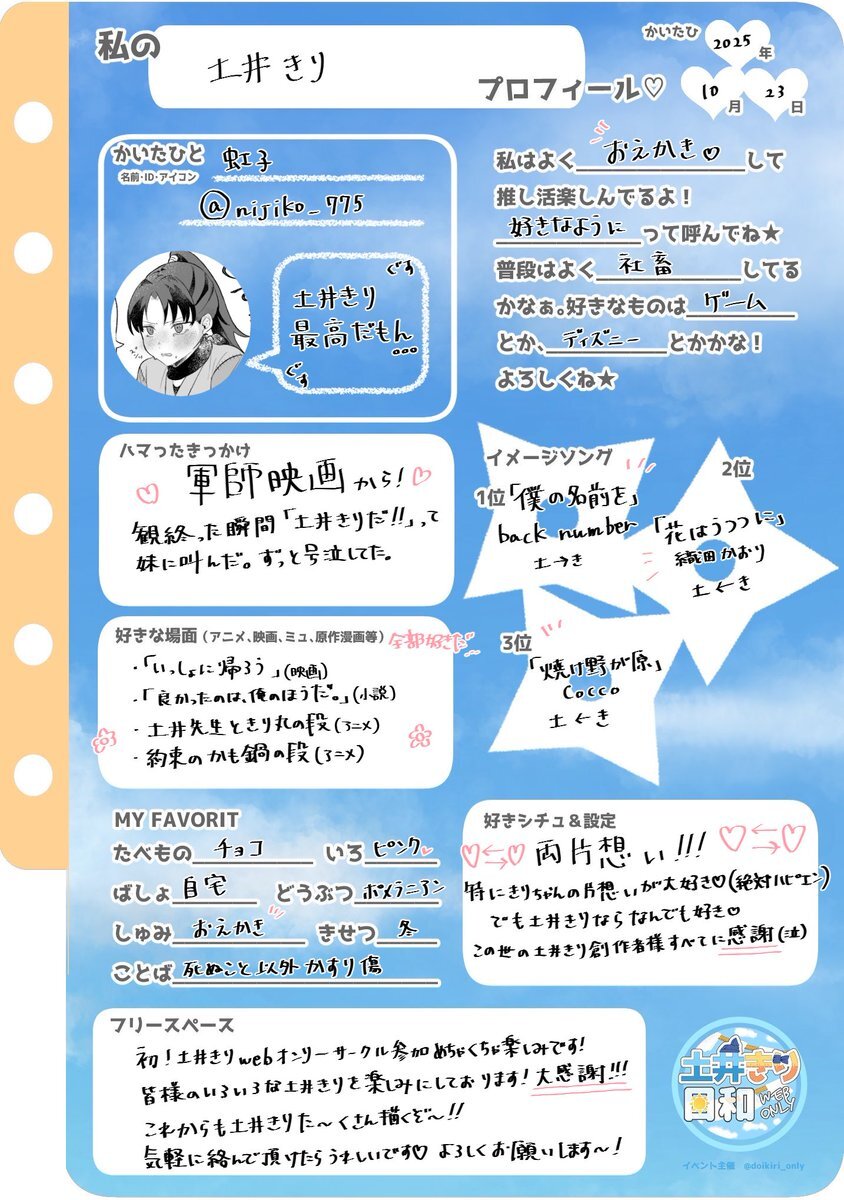 私の
土井きり
プロフィール♡
かいたひ
2025年
10月23日
かいたひと
名前・ID・アイコン
虹子
@nijiko_775
ぐす
土井きり
最高だもん
...
ぐす
私はよくおえかき♡して
推し活楽しんでるよ！
好きなようにって呼んでね★
普段はよく社畜してる
かなぁ。好きなものはゲーム
とか、ディズニーとかかな！
よろしくね★
ハマったきっかけ
♡軍師映画から!♡
観終った瞬間「土井きりだ!!」って
妹に叫んだ。ずっと号泣してた。
イメージソング
1位「僕の名前を」
back number
土→き
2位
「花はうつつに」
織田かおり
土←き
3位
「焼け野が原」
Cocco
土←き
好きな場面（アニメ、映画、ミュ、原作漫画等）
全部好きだ〜
・「いっしょに帰ろう」(映画)
・「良かったのは、俺のほうだ。」(小説)
・土井先生ときり丸の段(アニメ)
・約束のかも鍋の段(アニメ)
MY FAVORIT
たべもの チョコ いろ ピンク♡
ばしょ 自宅 どうぶつ ポメラニアン
しゅみ おえかき きせつ 冬
ことば 死ぬこと以外かすり傷
好きシチュ＆設定
♡⇆♡両片想い!!!♡⇆♡
特にきりちゃんの片想いが大好き♡(絶対ハピエン)
でも土井きりならなんでも好き♡
この世の土井きり創作者様すべてに感謝(泣)
フリースペース
初！土井きりwebオンリーサークル参加めちゃくちゃ楽しみです!
皆様のいろいろな土井きりを楽しみにしております! 大感謝!!!
これからも土井きりた〜くさん描くぞ〜!!
気軽に絡んで頂けたらうれしいです♡ よろしくお願いします〜!
土井きり
日和
WEB
ONLY
イベント主催 @doikiri_only